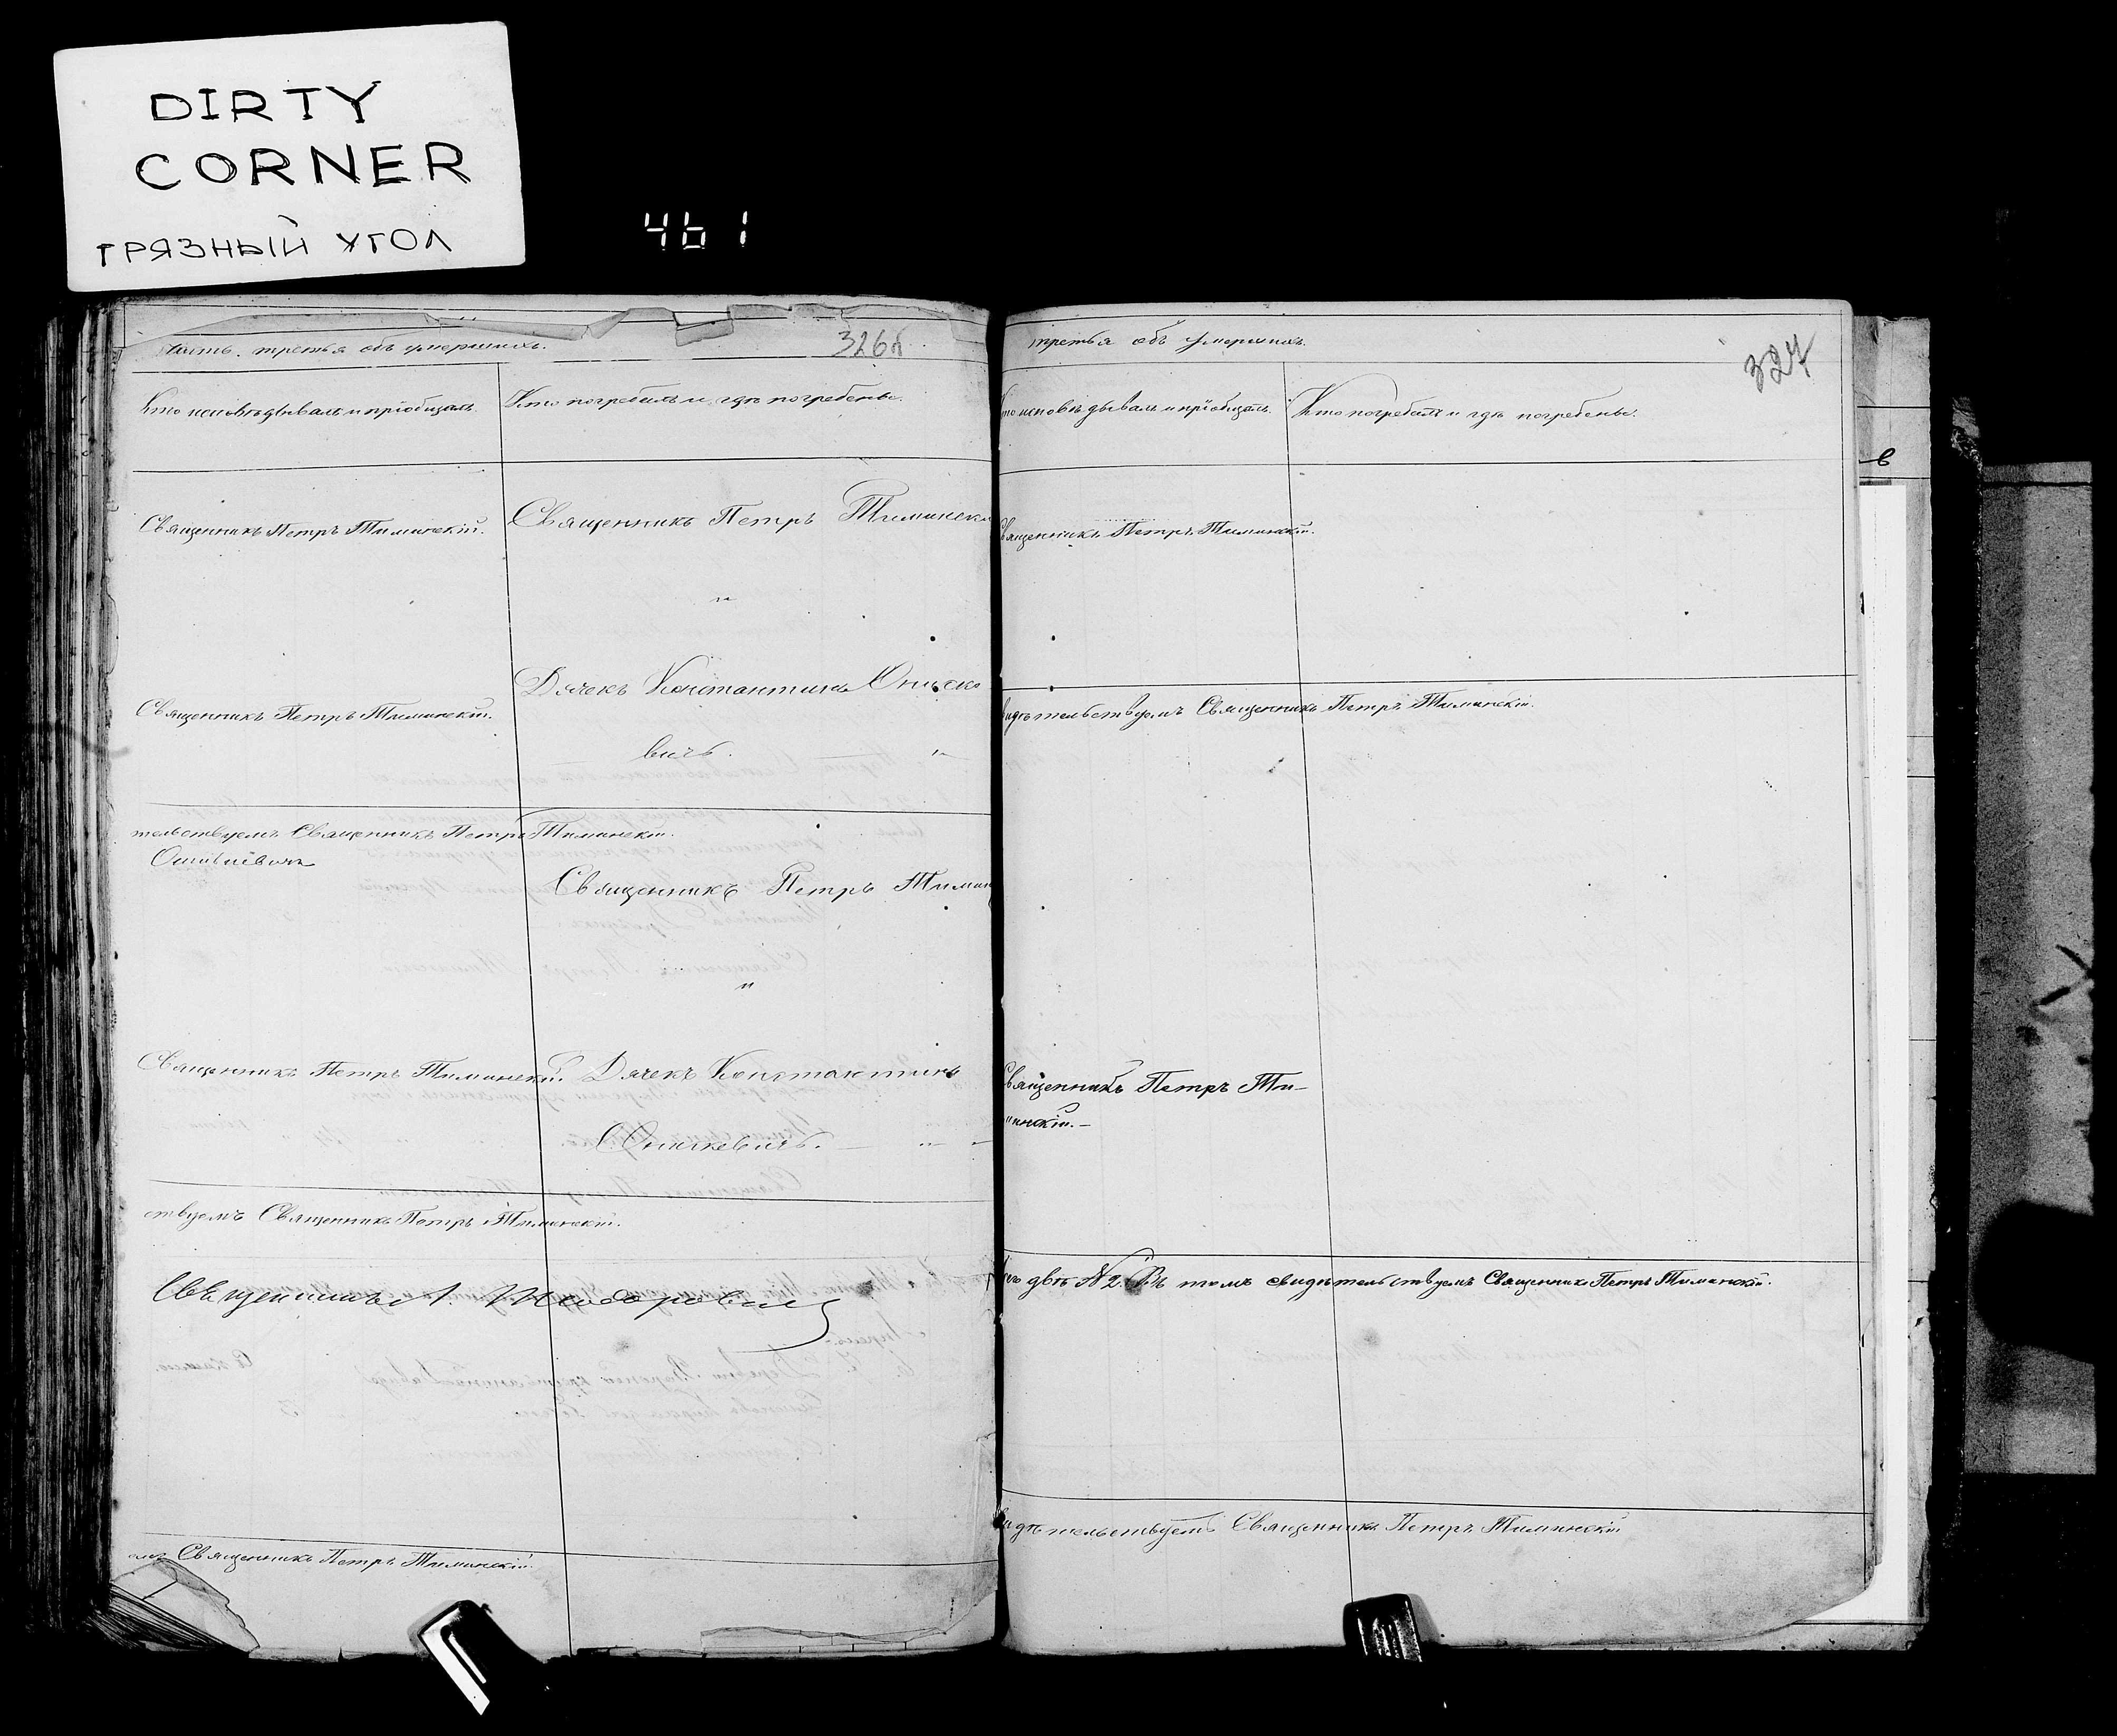 DIRTY
CORNER
ГРЯЗНЫЙ УГОЛ
461
Часть третья объ умершихъ.
326б
Кто исповѣдывалъ и пріобщалъ.
Кто погребалъ и гдѣ погребены.
Священникъ Петръ Тиминскій.
Священникъ Петръ Тиминск
"
Дячекъ Константинъ
Священникъ Петръ Тиминскій.
вичъ. "
тельствуемъ Священникъ Петръ Тиминскій.
Священникъ Петръ Тимин
"
Священникъ Петръ Тиминскій.
Дячекъ Константинъ
Оничкевичъ. "
ствуемъ Священникъ Петръ Тиминскій.
Священникъ
Священникъ Петръ Тиминскій.
третья объ умершихъ.
327
то исповѣдывалъ и пріобщалъ.
Кто погребалъ и гдѣ погребены.
в
вященникъ Петръ Тиминскій.
видѣтельствуемъ Священникъ Петръ Тиминскій.
Священникъ Петръ Ти-
минскій.-
двѣ № 2. Въ томъ свидѣтельствуемъ Священникъ Петръ Тиминскій.
видѣтельствуемъ Священникъ Петръ Тиминскій